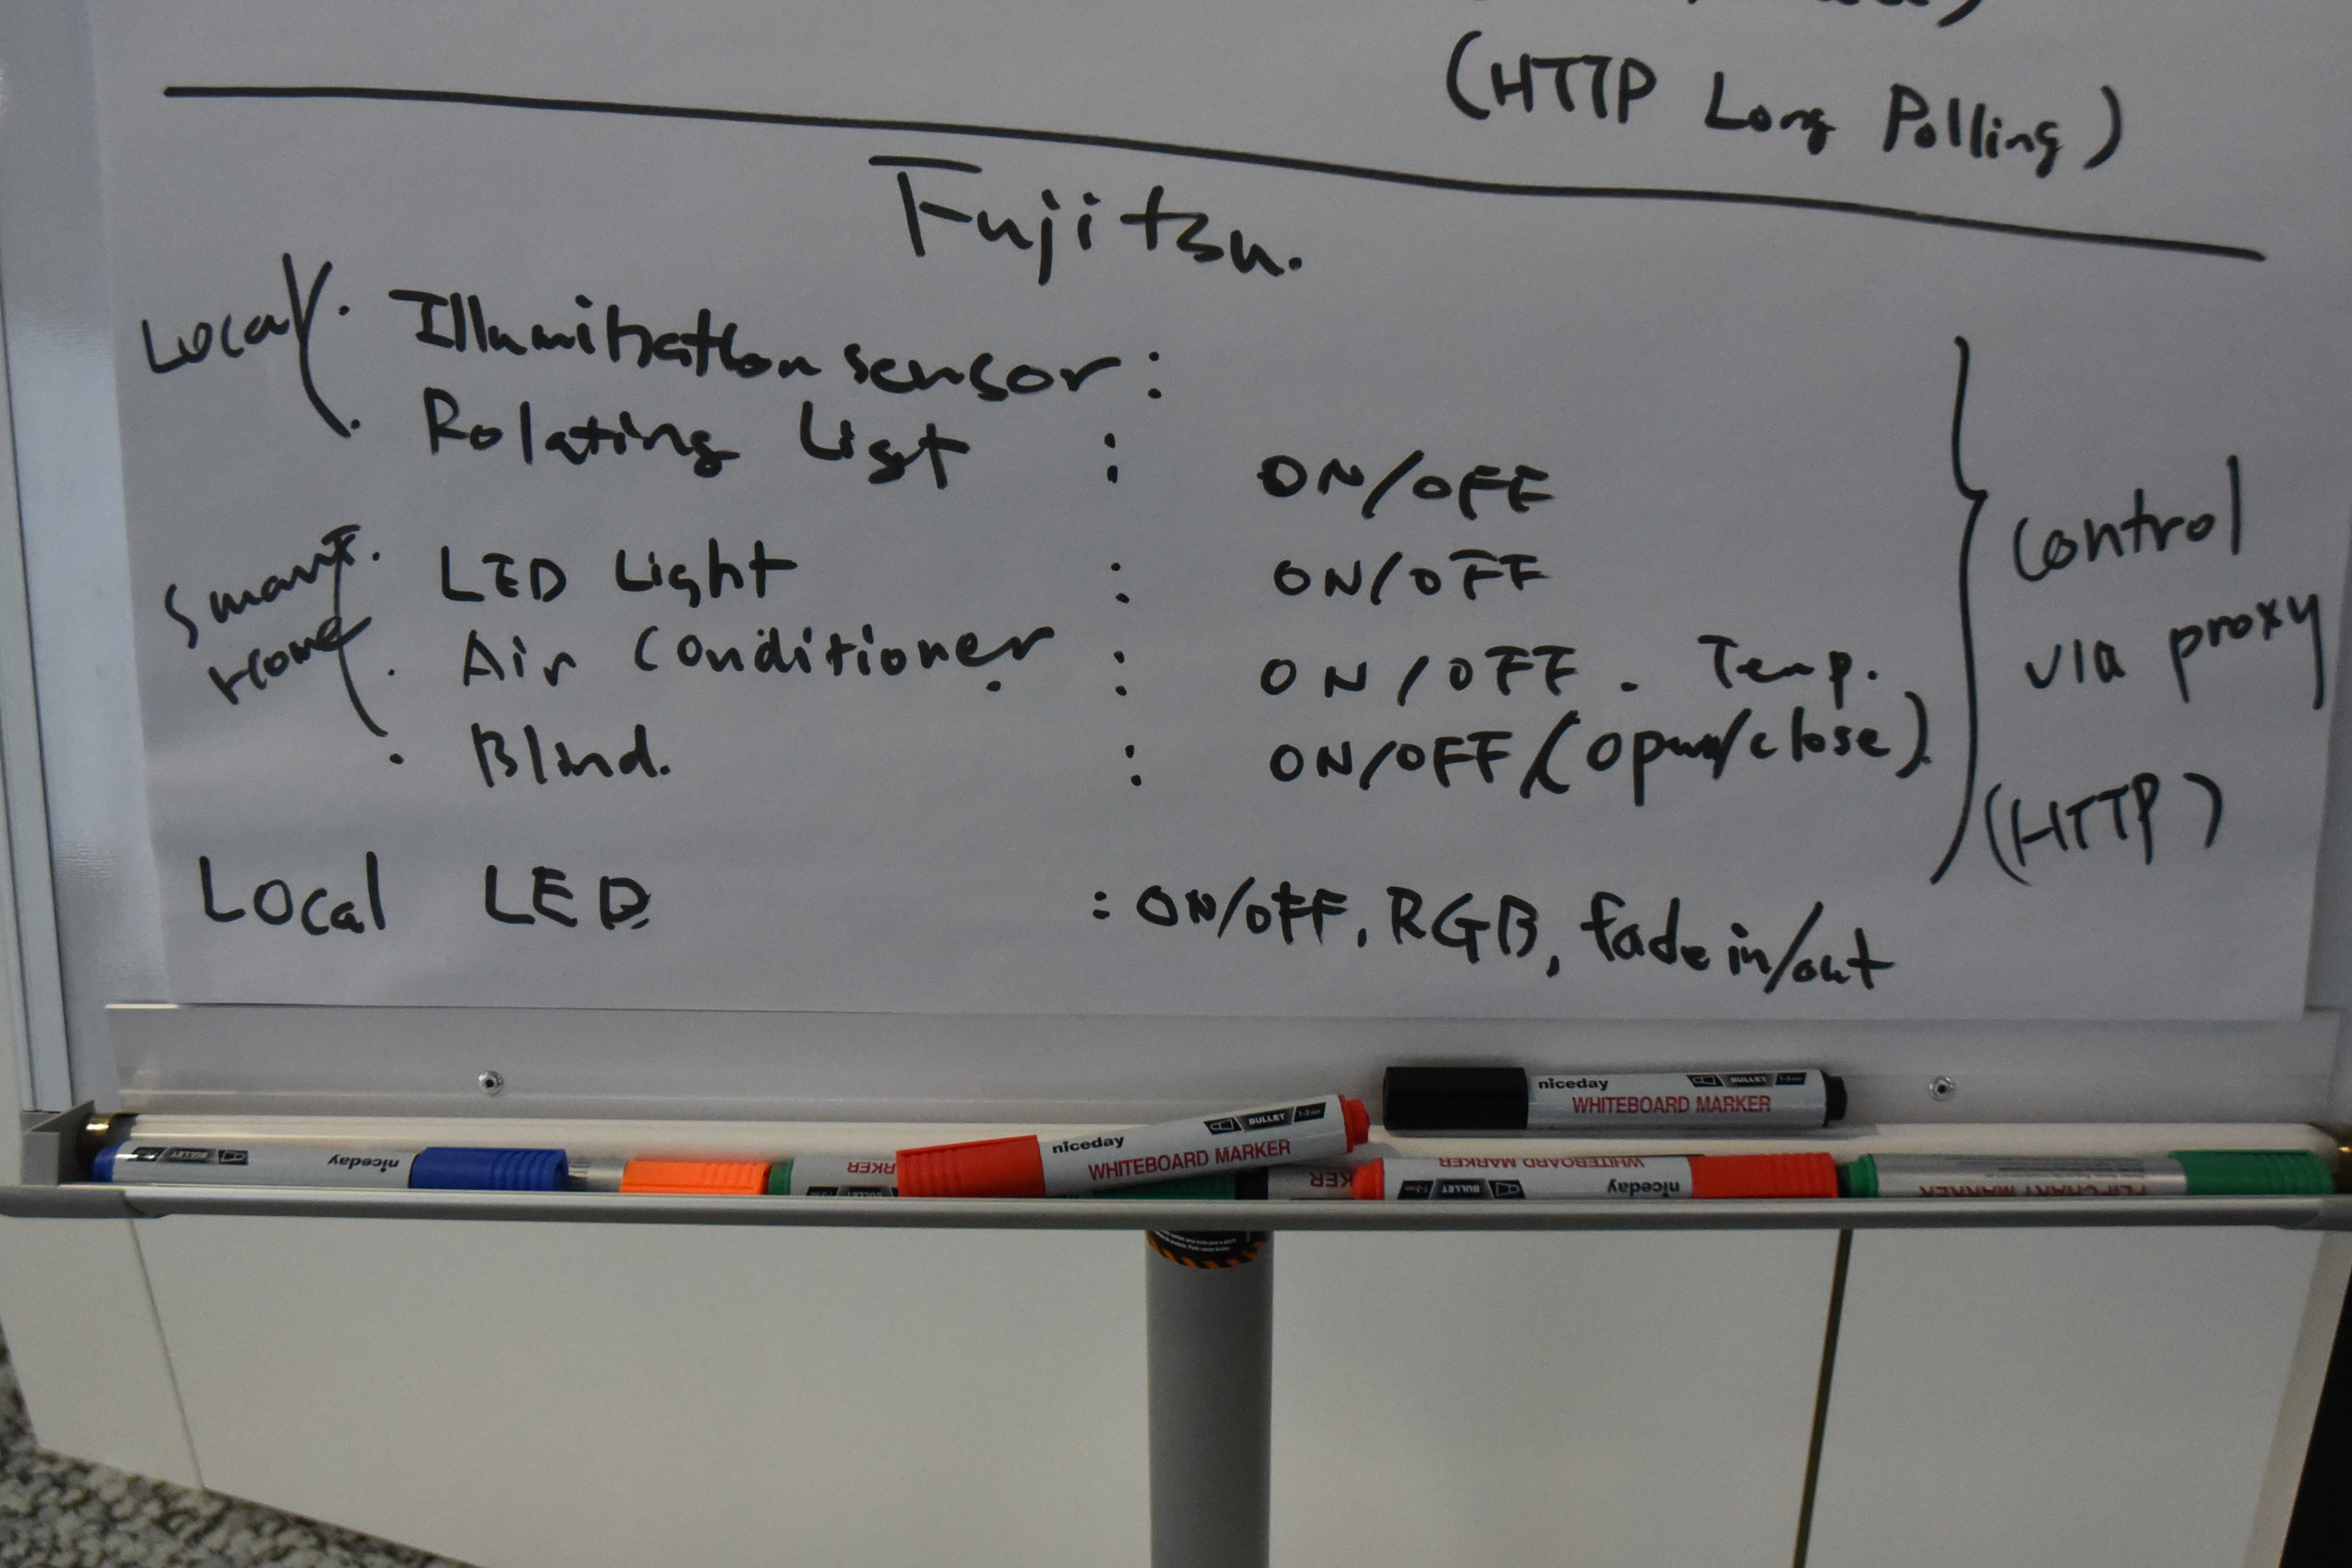 (HTTP Long Polling)
Fujitsu.
Local
· Illumination sensor :
· Rolating Light : ON/OFF
Smart
Home
· LED Light : ON/OFF
· Air Conditioner : ON/OFF . Temp.
· Blind. : ON/OFF/(open/close)
Control
via proxy
(HTTP)
Local LED : ON/OFF, RGB, fade in/out
niceday BULLET 1-3mm
WHITEBOARD MARKER
niceday BULLET 1-3mm
WHITEBOARD MARKER
niceday BULLET
RKER
BULLET
RKER
WHITEBOARD MARKER
niceday BULLET
FLIPCHART MARKER